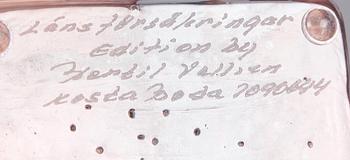 Länsförsäkringar
Edition by
Bertil Vallien
Kosta Boda 7090644